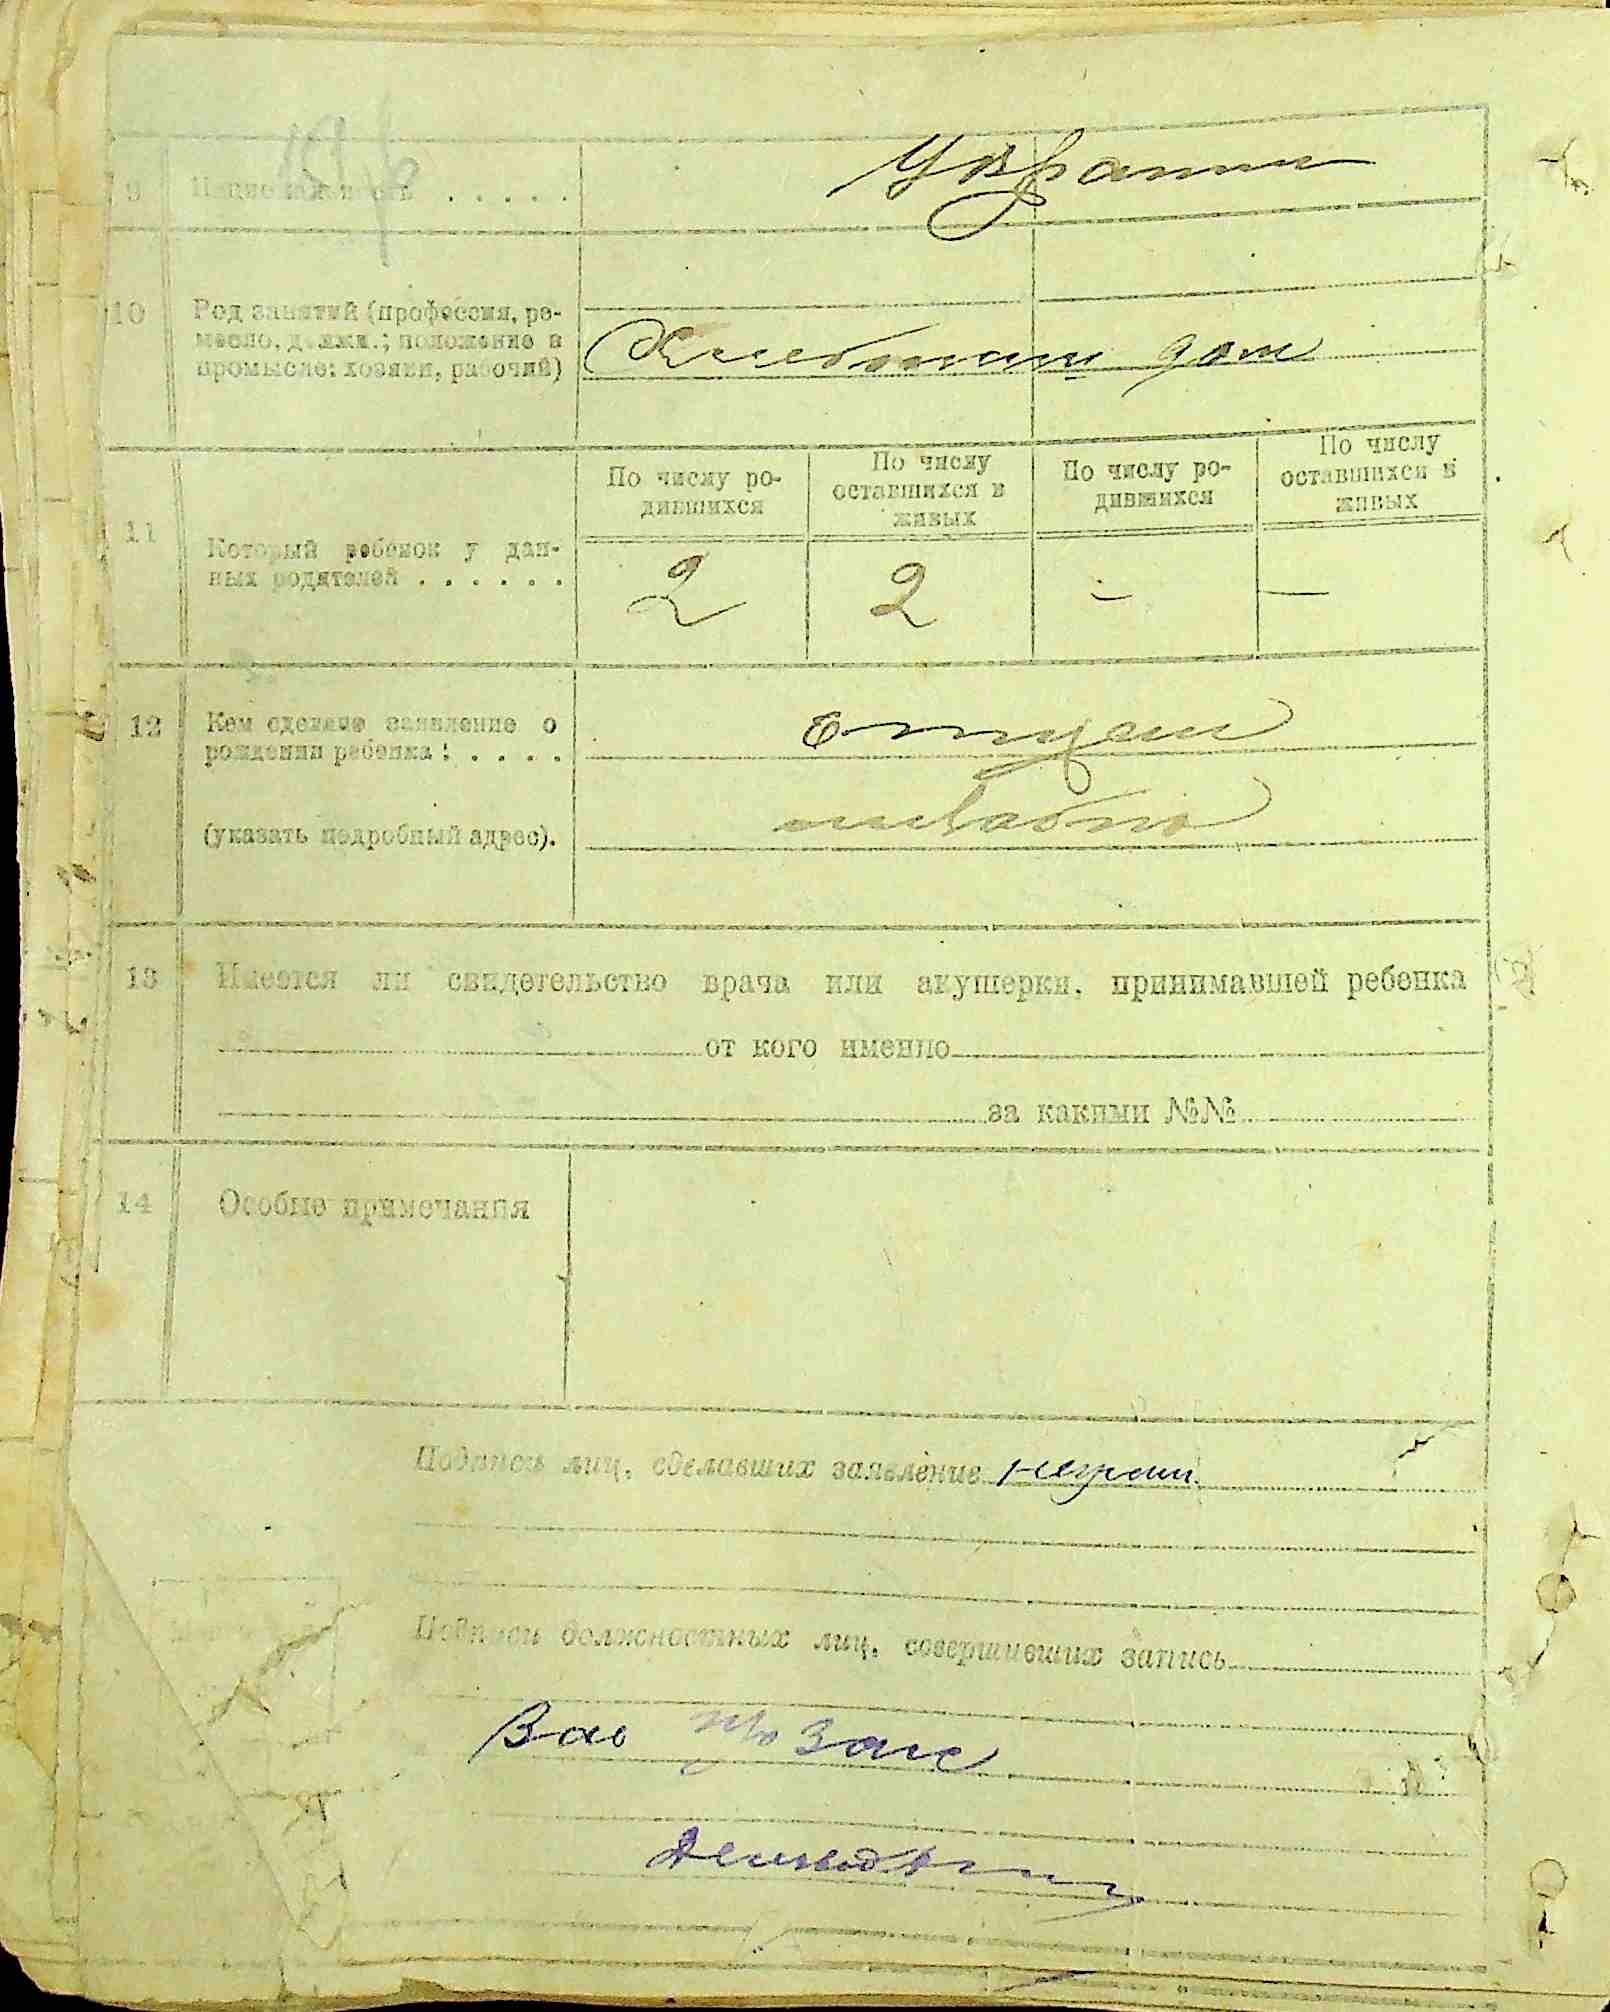 9 Национальность . . . . .
Украин
10 Род занятий (профессия, ре-
месло, должн.; положение в
промысле: хозяин, рабочий)
Хлебопаш дом
По числу ро-
дившихся
По числу
оставшихся в
живых
По числу ро-
дившихся
По числу
оставшихся в
живых
11 Который ребенок у дан-
ных родителей . . . . . .
2 2 - —
12 Кем сделано заявление о
рождении ребенка: . . . .
отцем
(указать подробный адрес).
13 Имеется ли свидетельство врача или акушерки, принимавшей ребенка
от кого именно
за какими №№
14 Особые примечания
Подписи лиц, сделавших заявление неграм.
Подписи должностных лиц, совершивших запись
Зав Загс